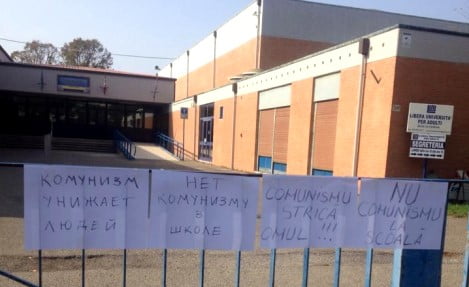 КОМУНИЗМ
УНИЖАЕТ
ЛЮДЕЙ
НЕТ
КОМУНИЗМУ
В
ШКОЛЕ
COMUNISMU
STRICA
OMUL !!!
NU
COMUNISMU
LA
SCOALĂ
LIBERA UNIVERSITA'
PER ADULTI
SEGRETERIA